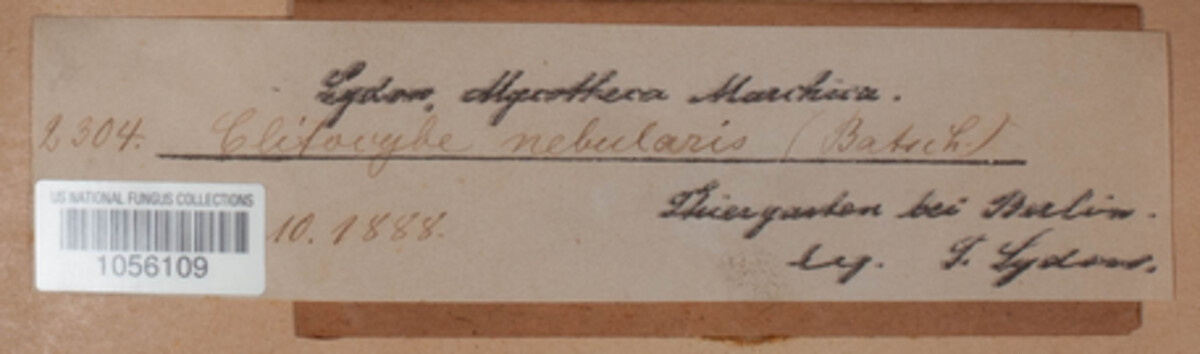 Sydow, Mycotheca Marchica.
2304. Clitocybe nebularis (Batsch.)
US NATIONAL FUNGUS COLLECTIONS
1056109
10. 1888.
Thiergarten bei Berlin.
leg. P. Sydow.